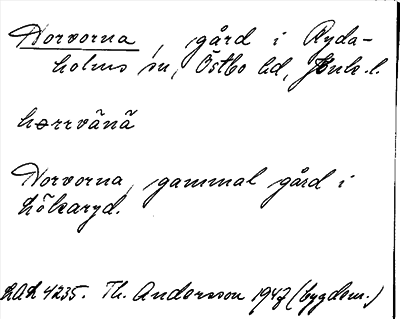 Norvorna, gård i Ryda-
holms sn, Östbo hd, Jönk. l.
horrvänä
Norvorna, gammal gård i
Hökaryd.
4235. Th. Andersson 1947 (bygdem.)